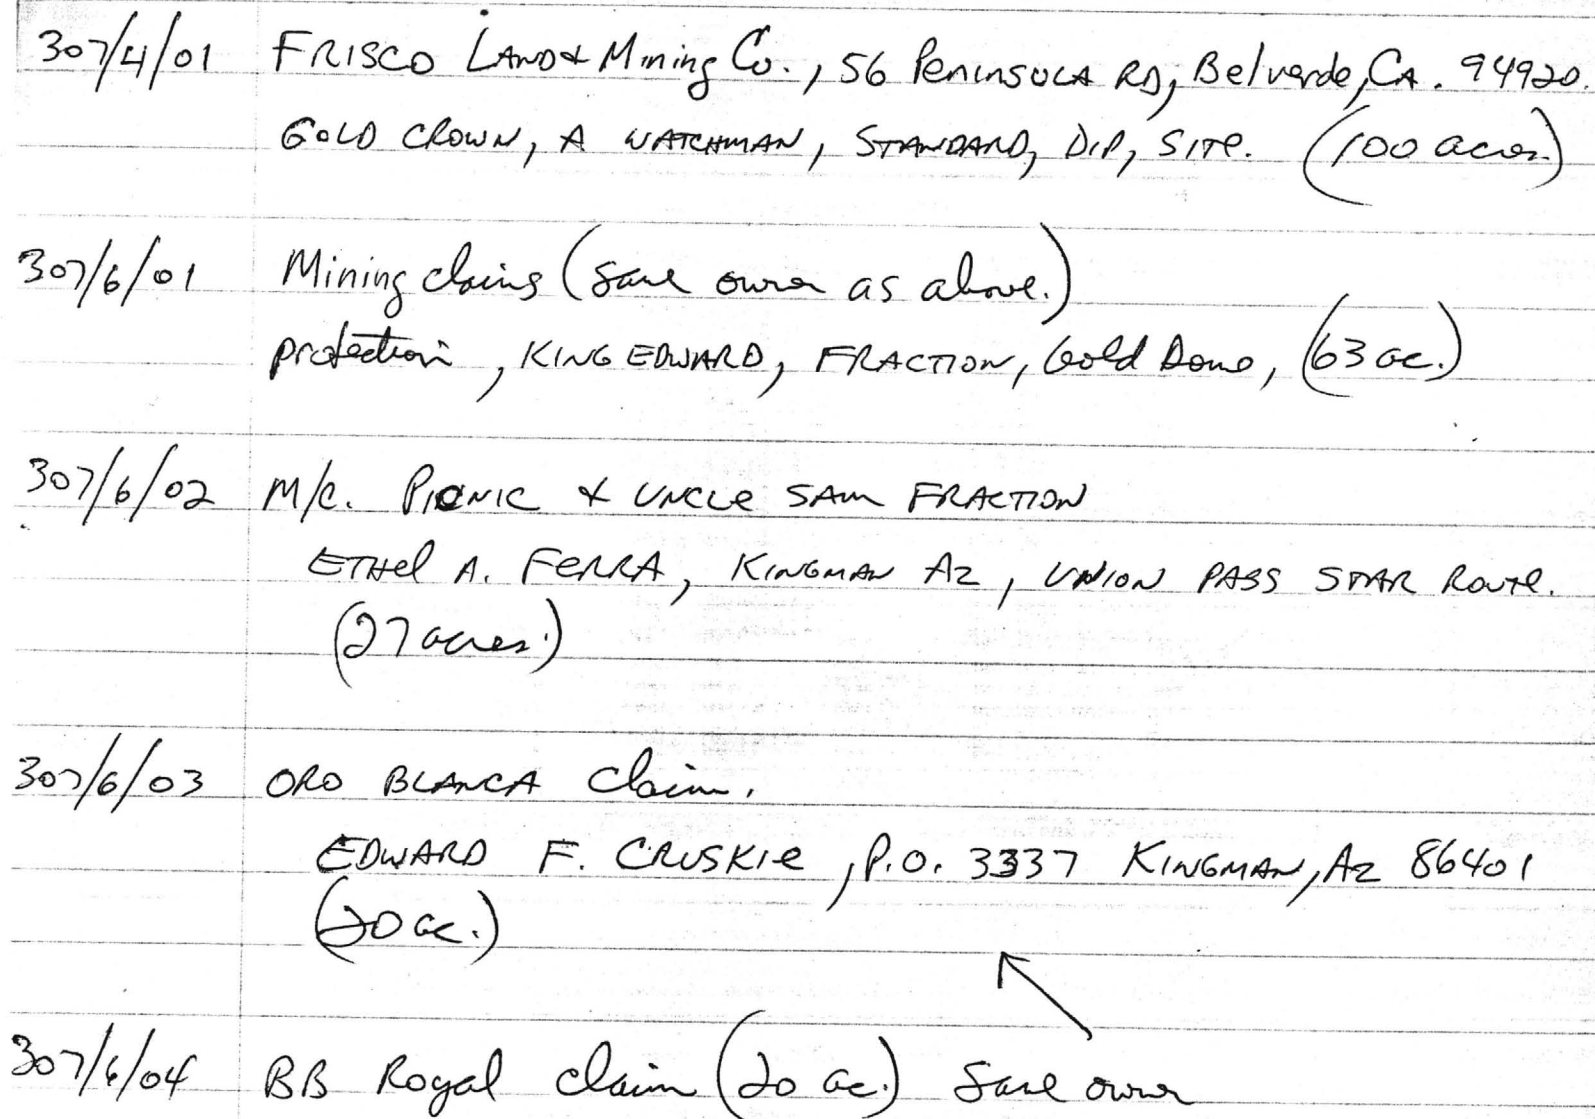 307/4/01 FRISCO LAND & Mining Co., 56 PENINSULA RD, Belverde, CA. 94920.
GOLD CROWN, A WATCHMAN, STANDARD, DIP, SITE. (100 acres.)
307/6/01 Mining claims (same owner as above.)
protection, KING EDWARD, FRACTION, Gold Dome, (63 ac.)
307/6/02 M/C. PICNIC & UNCLE SAM FRACTION
ETHEL A. FERRA, KINGMAN AZ, UNION PASS STAR ROUTE.
(27 acres.)
307/6/03 ORO BLANCA Claim.
EDWARD F. CRUSKIE, P.O. 3337 KINGMAN, AZ 86401
(20 ac.)
307/6/04 BB Royal claim (20 ac.) Same owner